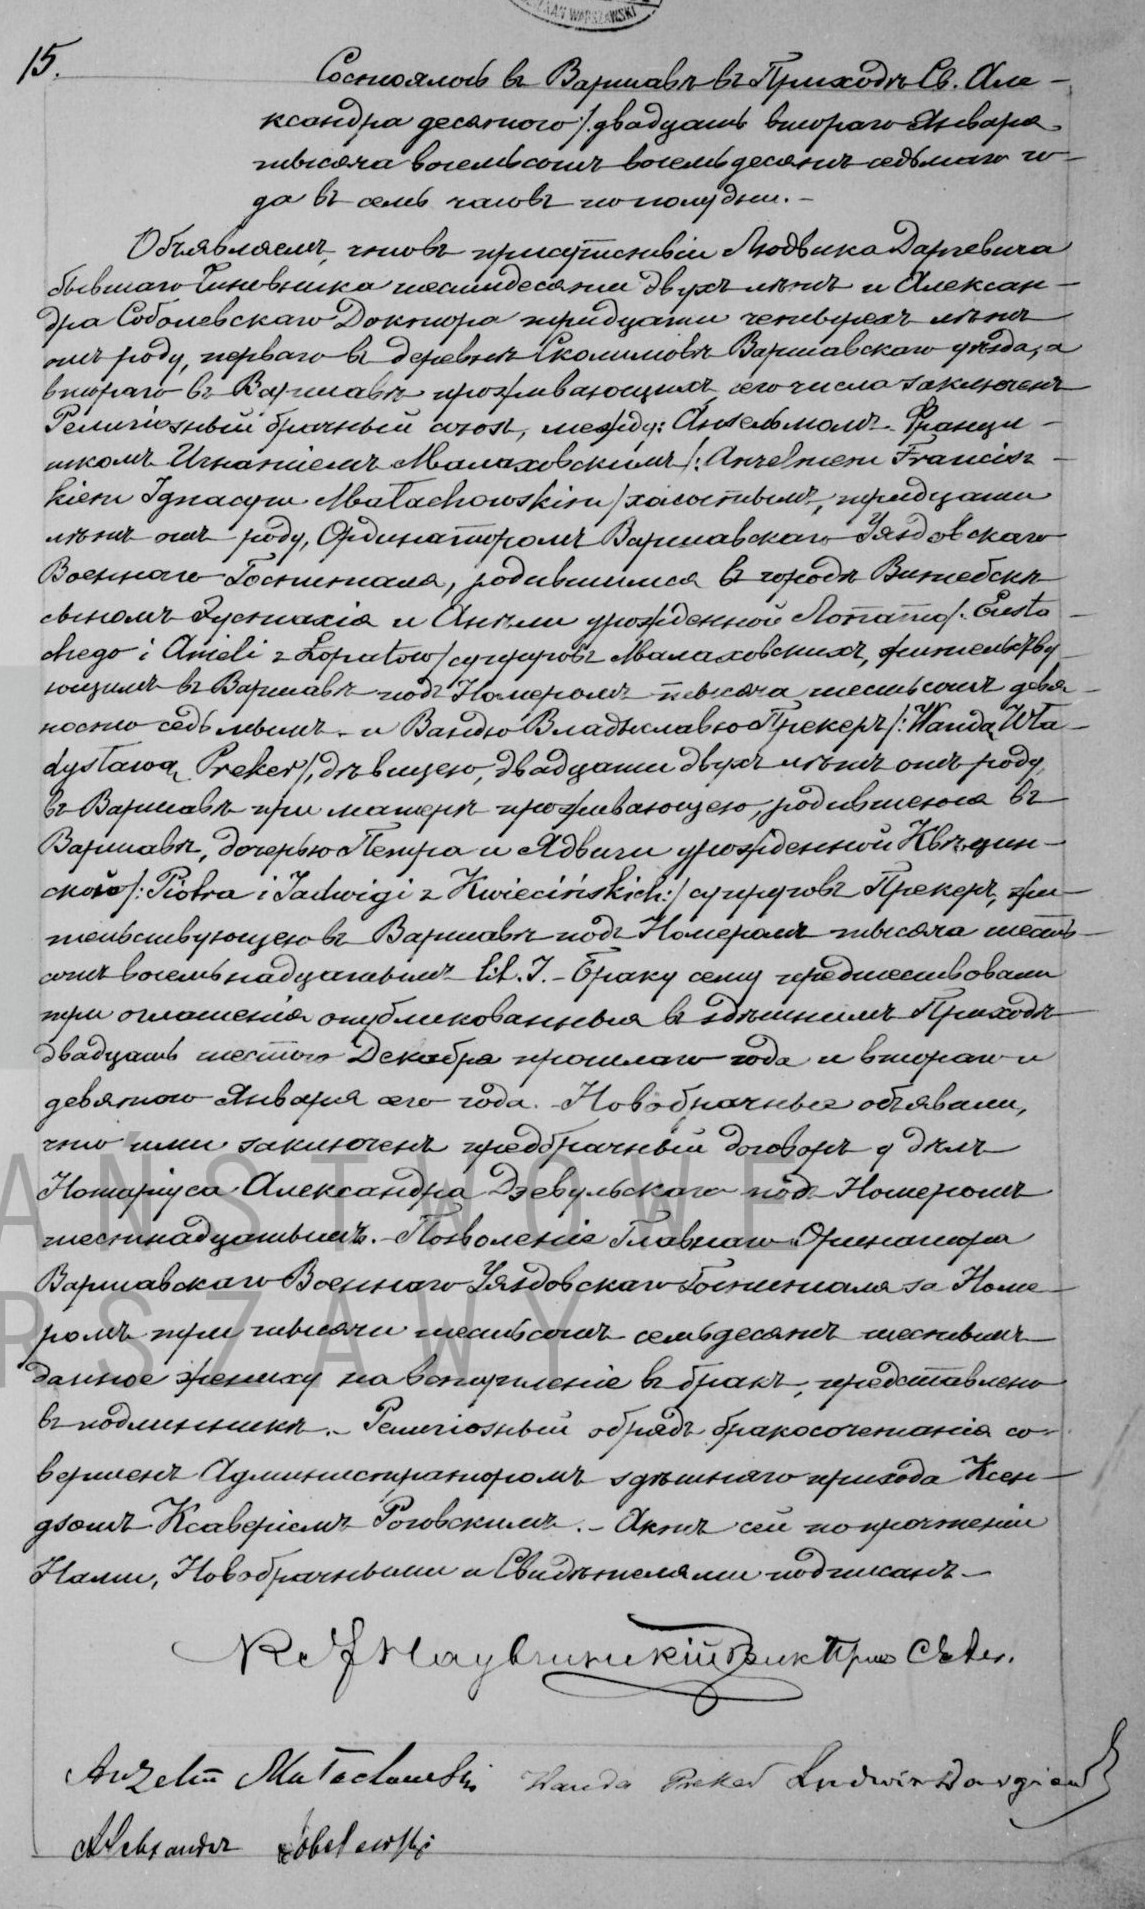 KAAN WARSZAWSKI
15.
Состоялось въ Варшавѣ въ Приходѣ Св. Але-
ксандра десятого /: двадцать втораго Января
тысяча восемьсотъ восемьдесятъ седьмаго го-
да въ семь часовъ пополудни. -
Объявляемъ, что въ присутствіи Людвика Даргевича
бывшаго Чиновника шестидесяти двухъ лѣтъ и Алексан-
дра Соболевскаго Доктора тридцати четырехъ лѣтъ
отъ роду, перваго въ деревнѣ Сколимовѣ Варшавскаго уѣзда, а
втораго въ Варшавѣ проживающихъ, сего числа заключенъ
Религіозный брачный союзъ, между: Ансельмомъ Францы-
шкомъ Игнатіемъ Малаховскимъ /: Anzelmem Francisz-
kiem Ignacym Małachowskim / холостымъ, тридцати
лѣтъ отъ роду, Ординаторомъ Варшавскаго Уяздовскаго
Военнаго Госпиталя, родившимся въ городѣ Витебскѣ
сыномъ Эустахія и Анели урожденной Лопатто /: Eusta-
chego i Anieli z Łopattow / супруговъ Малаховскихъ, жительству-
ющимъ въ Варшавѣ подъ Номеромъ тысяча шестьсотъ девя-
носто седьмымъ - и Вандою Владыславою Прекеръ /: Wandą Wła-
dysławą Preker /, дѣвицею, двадцати двухъ лѣтъ отъ роду,
въ Варшавѣ при матери проживающею, родившеюся въ
Варшавѣ, дочерью Петра и Ядвиги урожденной Квѣцин-
ской /: Piotra i Jadwigi z Kwiecińskich :/ супруговъ Прекеръ, жи-
тельствующею въ Варшавѣ подъ Номеромъ тысяча шесть-
сотъ восемьнадцатымъ lit. J. - Браку сему предшествовали
три оглашенія опубликованныя въ здѣшнемъ Приходѣ
двадцать шестого Декабря прошлаго года и втораго и
девятого Января сего года. - Новобрачные объявили,
что ими заключенъ предбрачный договоръ у дѣлъ
Нотаріуса Александра Дзевульскаго подъ Номеромъ
шестнадцатымъ. - Позволеніе Главнаго Ординатора
Варшавскаго Военнаго Уяздовскаго Госпиталя за Номе-
ромъ три тысячи шестьсотъ семьдесятъ шестымъ
данное жениху на вступленіе въ бракъ, представлено
въ подлинникѣ. - Религіозный обрядъ бракосочетанія со-
вершенъ Администраторомъ здѣшняго прихода Ксен-
дзомъ Ксаверіемъ Роговскимъ. - Актъ сей по прочтеніи
Нами, Новобрачными и Свидѣтелями подписанъ. -
Вик Прих Св Ал.
Anzelm Małachowski Wanda Preker Ludwik Dargiewicz
Aleksander Sobolewski
AŃSTWOWE
RSZAWY